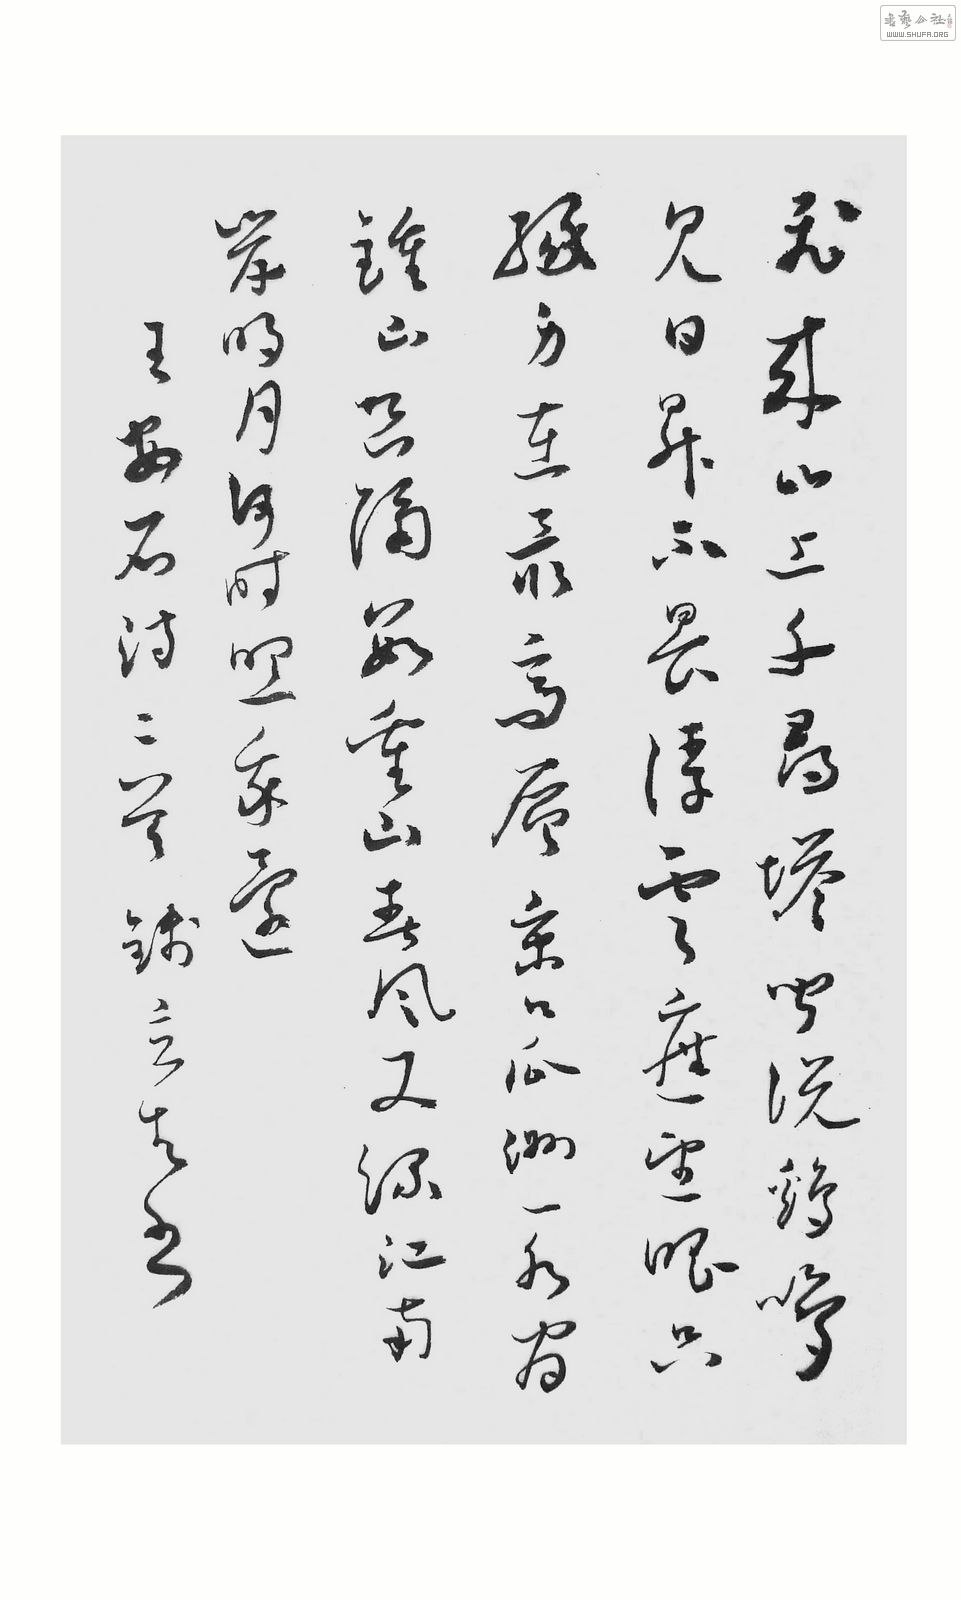 飛來山上千尋塔聞說鷄鳴
見日昇不畏浮雲遮望眼只
緣身在最高層京口瓜洲一水間
鍾山只隔數重山春風又綠江南
岸明月何時照我還
王安石詩二首 錢立志書
書藝公社
WWW.SHUFA.ORG